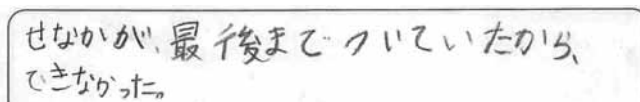 せなかが、最後までついていたから、
できなかった。